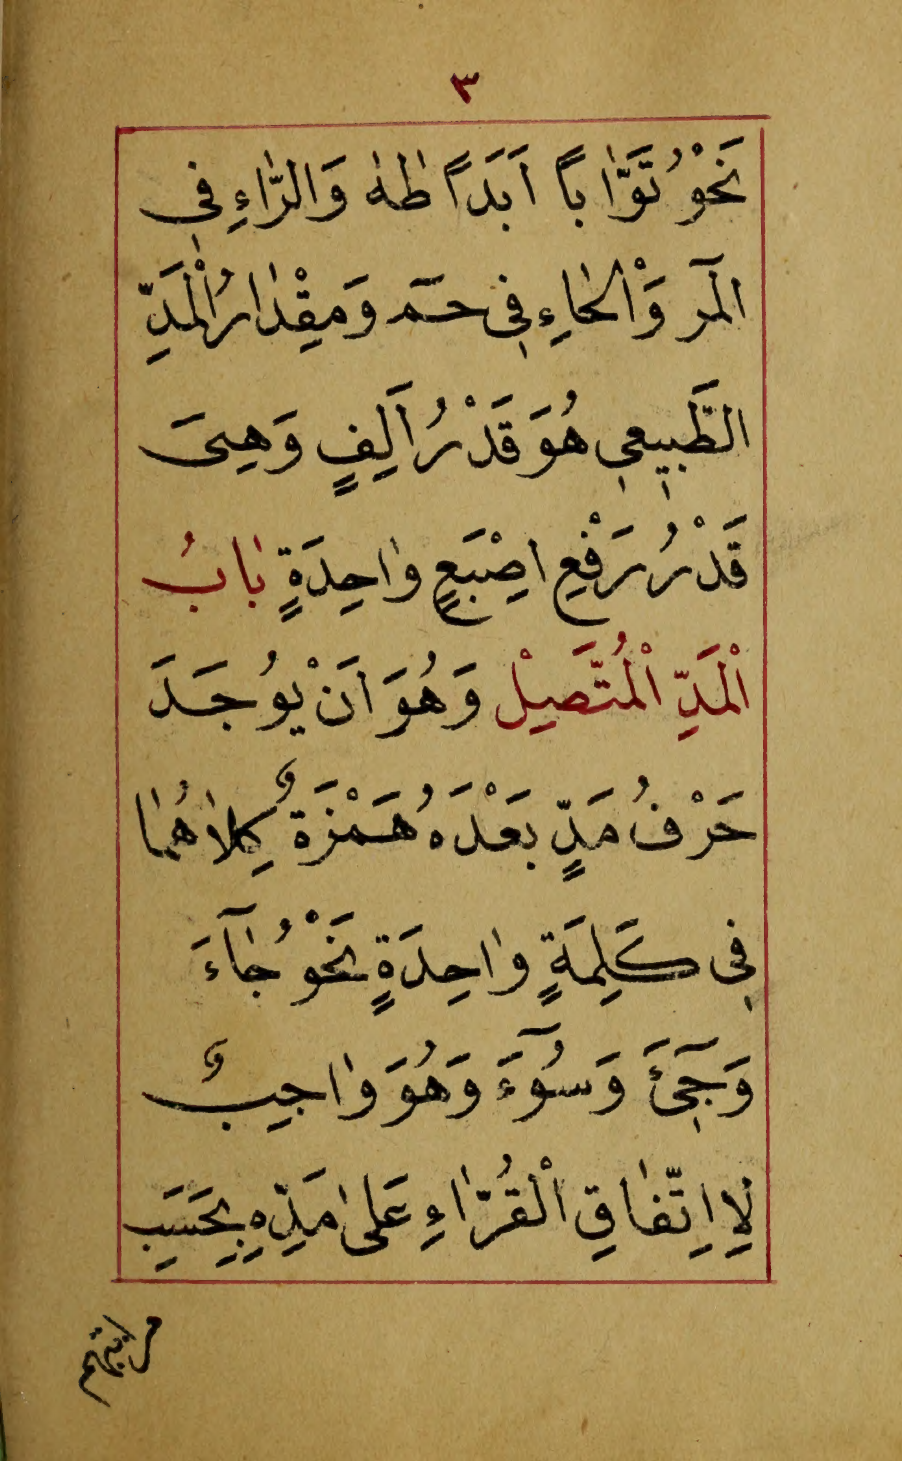 ٣
نَحْوُ تَوَّاباً اَبَدَاً طٰهٰ وَالرَّاءِ فِى
الٓمٓر وَالْحَاءِ فِى حٓمٓ وَمِقْدَارُ الْمَدِّ
الطَّبِيعِى هُوَ قَدْرُ اَلِفٍ وَهِىَ
قَدْرُ رَفْعِ اِصْبَعٍ وَاحِدَةٍ بَابُ
الْمَدِّ الْمُتَّصِيْل وَهُوَ اَنْ يُوجَدَ
حَرْفُ مَدٍّ بَعْدَهُ هَمْزَةٌ كِلاَهُمَا
فِى كَلِمَةٍ وَاحِدَةٍ نَحْوُ جَآءَ
وَجَۤئَ وَسُوۤءَ وَهُوَ وَاجِبٌ
لِاِتِّفَاقِ الْقُرَّاءِ عَلَى مَدِّهِ بِحَسَبِ
مراتبهم